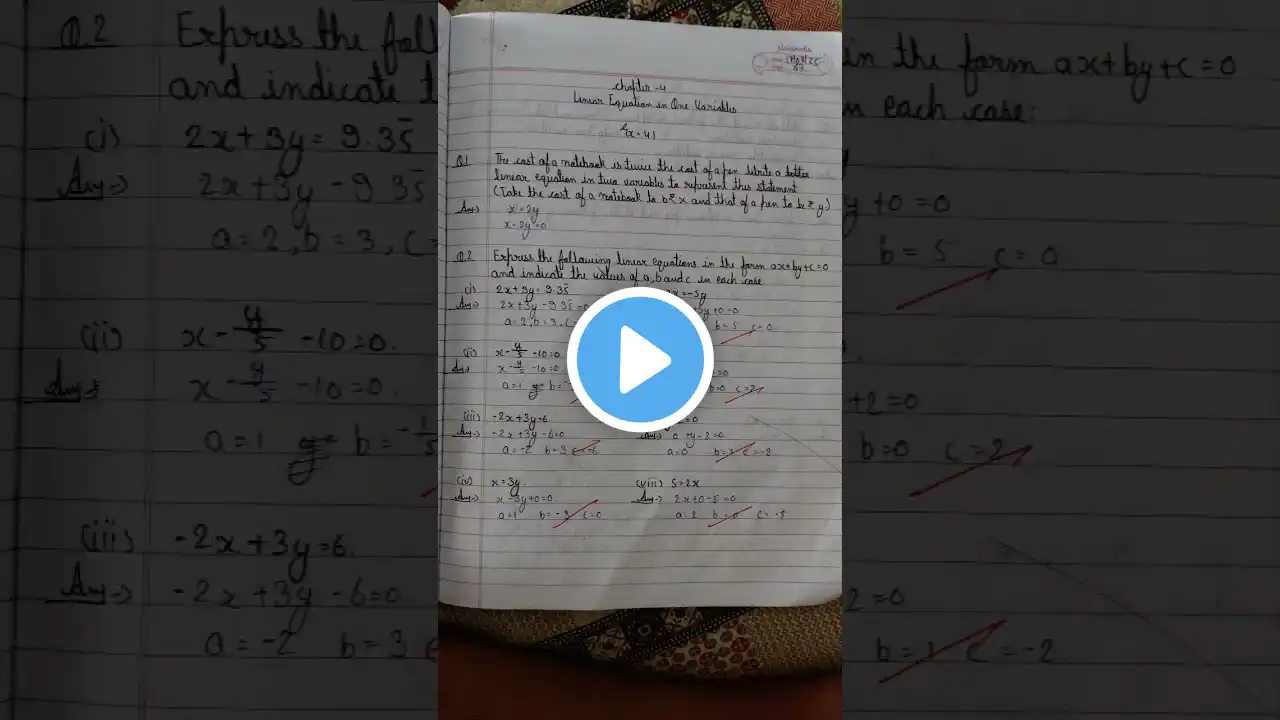 Chapter-4
Linear Equation in One Variables
Ex-4.1
Q.1 The cost of a notebook is twice the cost of a pen. Write a
linear equation in two variables to represent this statement
(Take the cost of a notebook to be ₹ x and that of a pen to be ₹ y)
Ans→ x = 2y
x-2y=0
Q.2 Express the following linear equations in the form ax+by+c=0
and indicate the values of a, b and c in each case
(i) 2x+3y=9.35̄
Ans→ 2x+3y-9.35̄=0
a=2, b=3, c
(ii) x-y/5 -10=0
Ans→ x-y/5 -10=0
a=1 b=-
(iii) -2x+3y=6.
Ans→ -2x+3y-6=0
a=-2 b=3 c=-6
(iv) x=3y
Ans→ x-3y+0=0
a=1 b=-3 c=0
=-5y
y+0=0
b=5 c=0
=0
b=0 c=2
=0
Ans→ 0 +y-2=0
a=0 b=1 c=-2
(viii) 5=2x
Ans→ 2x+0-5=0
a=2 b=0 c=-5
Q.2 Express the fol
and indicate t
(i) 2x+3y=9.35̄
Ans→ 2x+3y-9.35̄
a=2, b=3, c=
(ii) x-y/5 -10=0.
Ans→ x-y/5 -10=0.
a=1 b=-1/5
(iii) -2x+3y=6.
Ans→ -2x+3y-6=0
a=-2 b=3 c
in the form ax+by+c=0
n each case:
y+0=0
b=5 c=0
+2=0
b=0 c=2
2=0
b=1 c=-2